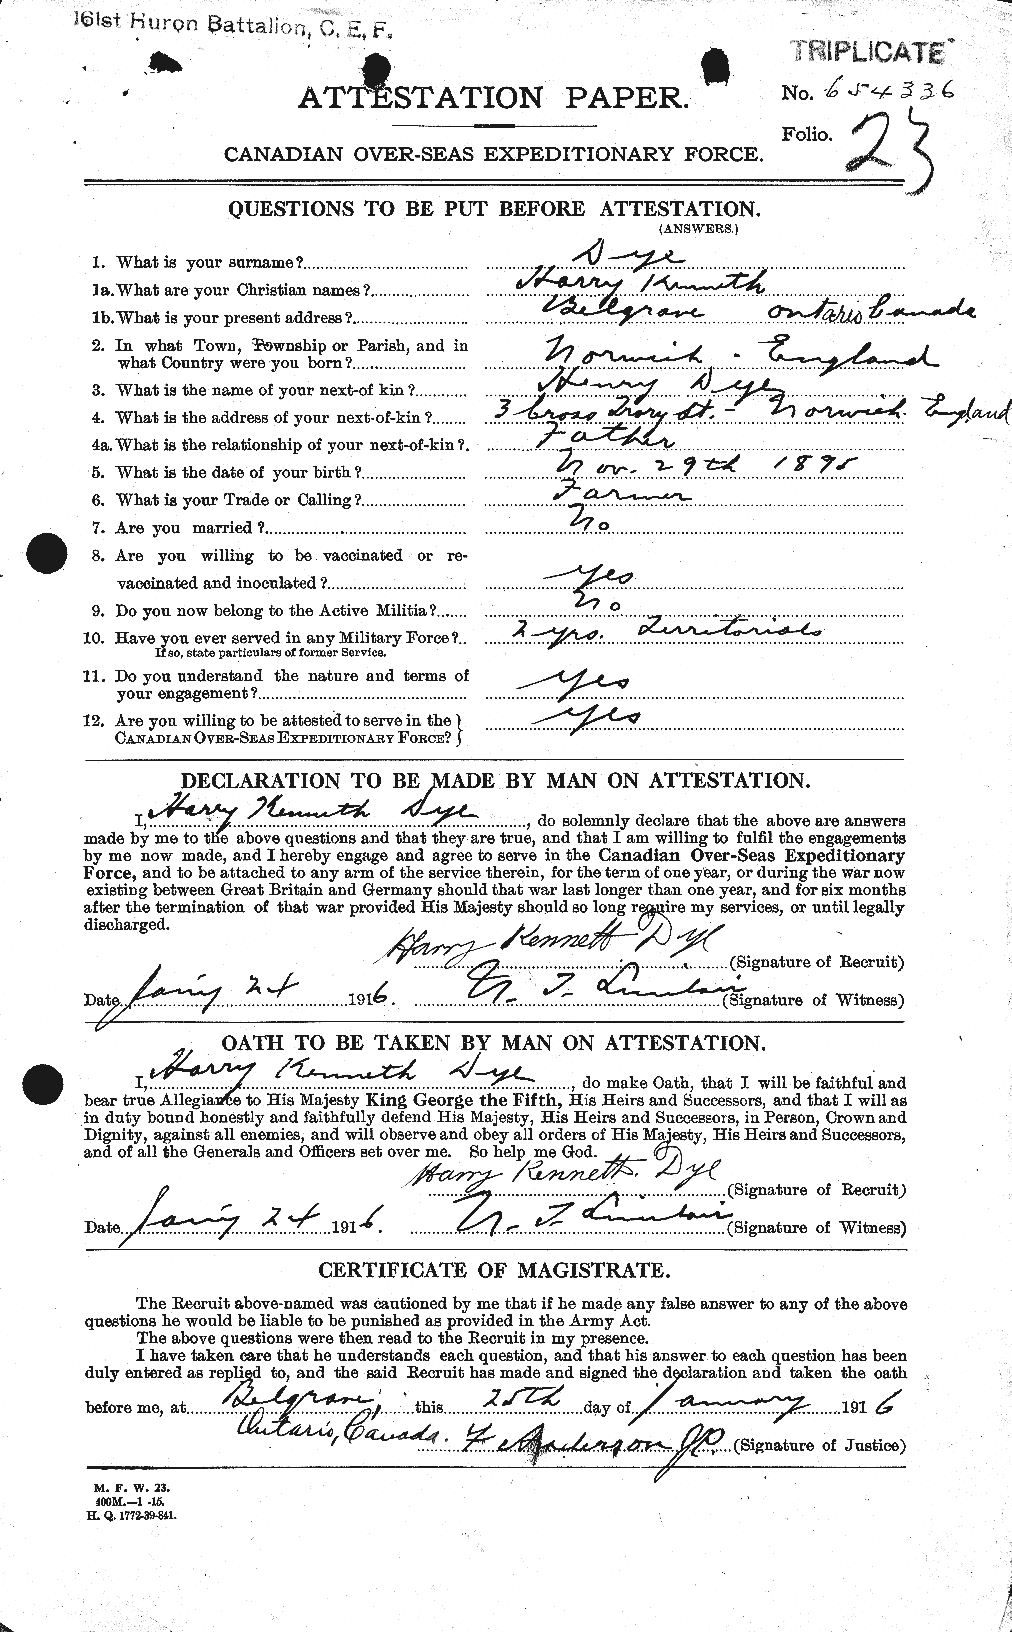 161st Huron Battalion, C. E. F.
TRIPLICATE
ATTESTATION PAPER.
No. 654336
Folio. 23
CANADIAN OVER-SEAS EXPEDITIONARY FORCE.
QUESTIONS TO BE PUT BEFORE ATTESTATION.
(ANSWERS.)
1. What is your surname? Dye
1a. What are your Christian names? Harry Kenneth
1b. What is your present address? Belgrave Ontario Canada
2. In what Town, Township or Parish, and in
what Country were you born? Norwich - England
3. What is the name of your next-of kin? Henry Dye
4. What is the address of your next-of-kin? 3 Cross Ivory St. - Norwich England
4a. What is the relationship of your next-of-kin? Father
5. What is the date of your birth? Nov. 29th 1895
6. What is your Trade or Calling? Farmer
7. Are you married? No
8. Are you willing to be vaccinated or re-
vaccinated and inoculated? Yes
9. Do you now belong to the Active Militia? No
10. Have you ever served in any Military Force? 2 yrs. Territorials
If so, state particulars of former Service.
11. Do you understand the nature and terms of
your engagement? Yes
12. Are you willing to be attested to serve in the
CANADIAN OVER-SEAS EXPEDITIONARY FORCE? Yes
DECLARATION TO BE MADE BY MAN ON ATTESTATION.
I, Harry Kenneth Dye, do solemnly declare that the above are answers
made by me to the above questions and that they are true, and that I am willing to fulfil the engagements
by me now made, and I hereby engage and agree to serve in the Canadian Over-Seas Expeditionary
Force, and to be attached to any arm of the service therein, for the term of one year, or during the war now
existing between Great Britain and Germany should that war last longer than one year, and for six months
after the termination of that war provided His Majesty should so long require my services, or until legally
discharged.
Harry Kenneth Dye (Signature of Recruit)
Date 24 1916. N. T. (Signature of Witness)
OATH TO BE TAKEN BY MAN ON ATTESTATION.
I, Harry Kenneth Dye, do make Oath, that I will be faithful and
bear true Allegiance to His Majesty King George the Fifth, His Heirs and Successors, and that I will as
in duty bound honestly and faithfully defend His Majesty, His Heirs and Successors, in Person, Crown and
Dignity, against all enemies, and will observe and obey all orders of His Majesty, His Heirs and Successors,
and of all the Generals and Officers set over me. So help me God.
Harry Kenneth Dye (Signature of Recruit)
Date 24 1916. N. T. (Signature of Witness)
CERTIFICATE OF MAGISTRATE.
The Recruit above-named was cautioned by me that if he made any false answer to any of the above
questions he would be liable to be punished as provided in the Army Act.
The above questions were then read to the Recruit in my presence.
I have taken care that he understands each question, and that his answer to each question has been
duly entered as replied to, and the said Recruit has made and signed the declaration and taken the oath
before me, at Belgrave, this 25th day of January 1916
Ontario, Canada. F Anderson JP. (Signature of Justice)
M. F. W. 23.
400M.—1 -15.
H. Q. 1772-39-841.